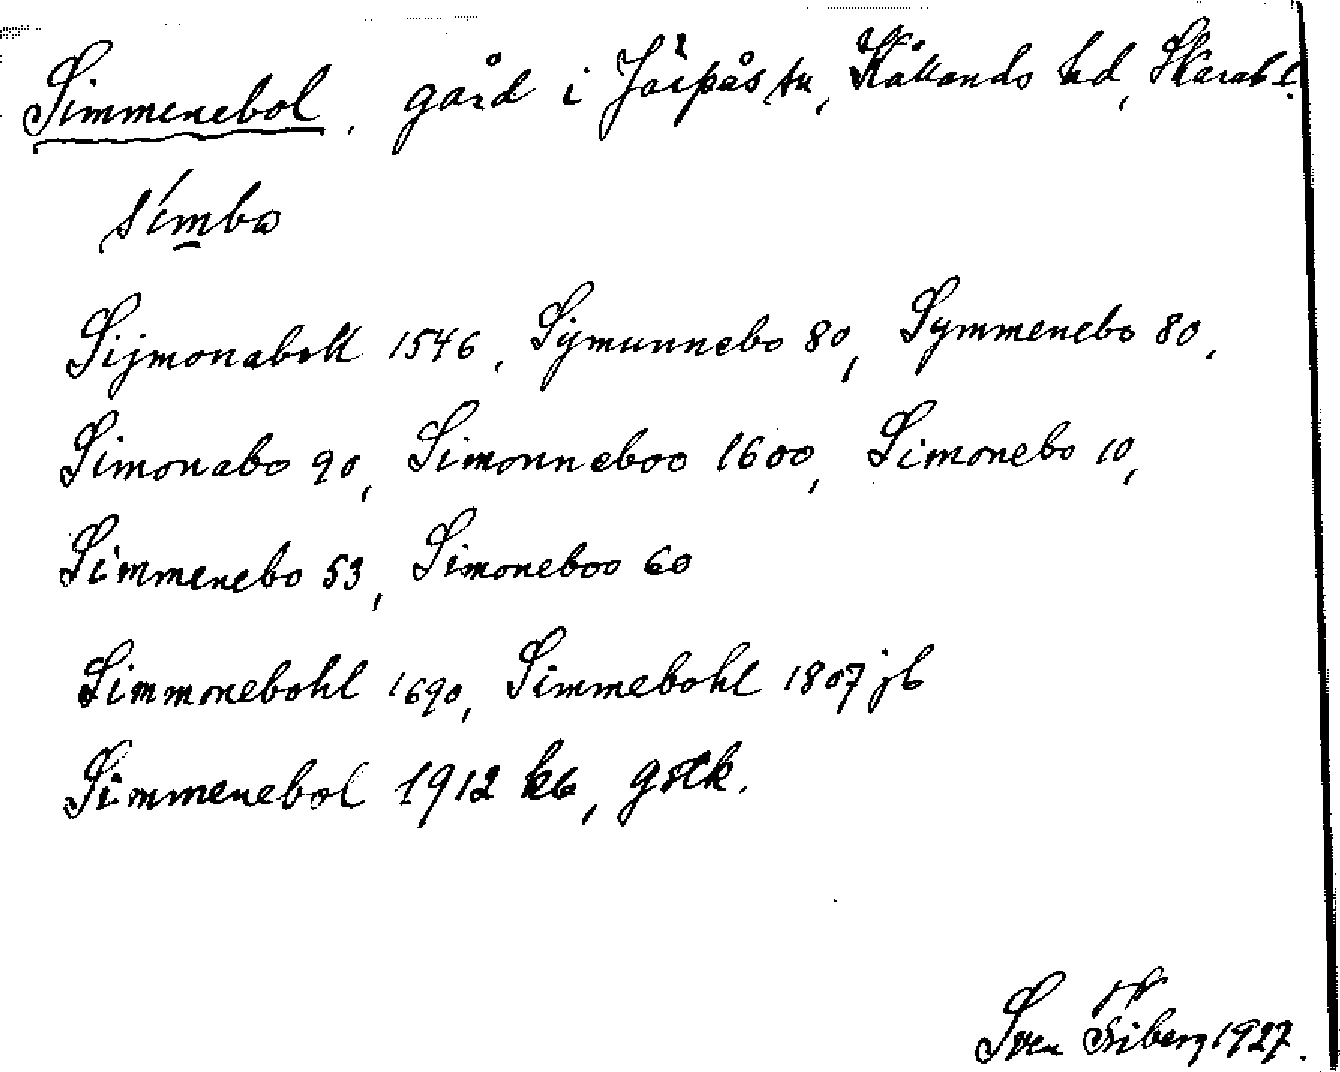 Simmenebol, gård i Järpås sn, Kållands hd, Skarab. l.
símbo
Sijmonaboll 1546, Sÿmunnebo 80, Symmenebo 80,
Simonabo 90, Simonneboo 1600, Simonebo 10,
Simmenebo 53, Simoneboo 60
Simmonebohl 1690, Simmebohl 1807 jb
Simmenebol 1912 kb, gstk.
Sven Friberg 1927.